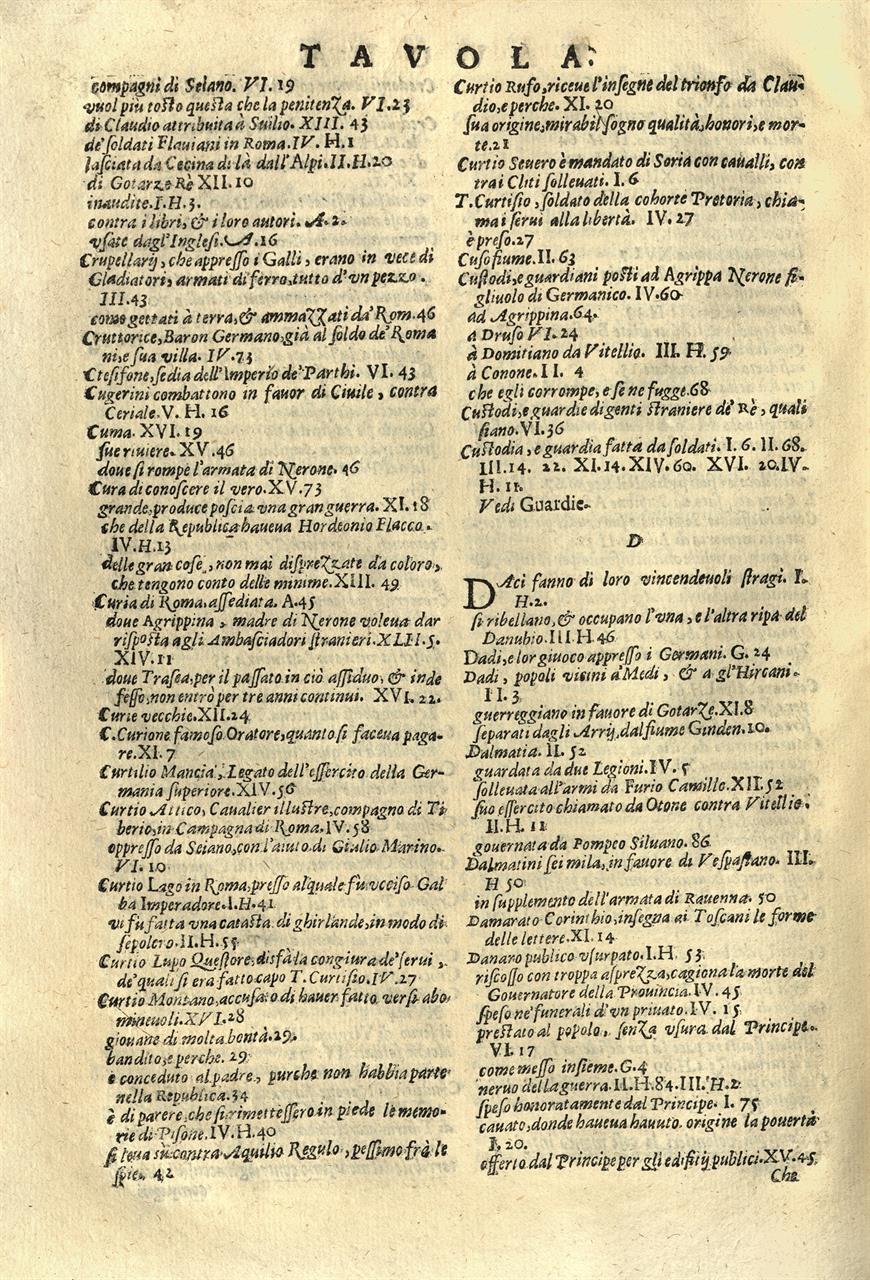 TAVOLA.
compagni di Seiano. VI. 19
vuol piu tosto questa che la penitenza. VI. 23
di Claudio attribuita à Suilio. XIII. 43
de' soldati Flauiani in Roma. IV. H. 1
lasciata da Cecina di là dall'Alpi. II. H. 20
di Gotarze Re XII. 10
inaudite. I. H. 3.
contra i libri, & i loro autori. A. 2.
vsate dagl'Inglesi. A. 16
Crupellarij, che appresso i Galli, erano in vece di
Gladiatori, armati di ferro, tutto d'vn pezzo.
III. 43
come gettati à terra, & ammazzati da' Rom. 46
Cruttorice, Baron Germano, già al soldo de' Roma
ni, e sua villa. IV. 73
Ctesifone, sedia dell'Imperio de' Parthi. VI. 43
Cugerini combattono in fauor di Ciuile, contra
Ceriale. V. H. 16
Cuma. XVI. 19
sue riuiere. XV. 46
doue si rompe l'armata di Nerone. 46
Cura di conoscere il vero. XV. 73
grande, produce poscia vna gran guerra. XI. 18
che della Republica haueua Hordeonio Flacco.
IV. H. 13
delle gran cose, non mai disprezzate da coloro,
che tengono conto delle minime. XIII. 49
Curia di Roma, assediata. A. 45
doue Agrippina, madre di Nerone voleua dar
risposta agli Ambasciadori stranieri. XLII. 5.
XIV. 11
doue Trasea, per il passato in ciò assiduo, & inde
fesso, non entrò per tre anni continui. XVI. 22.
Curie vecchie. XII. 24
C. Curione famoso Oratore, quanto si faceua paga-
re. XI. 7
Curtilio Mancia, Legato dell'essercito della Ger-
mania superiore. XIV. 56
Curtio Attico, Caualier illustre, compagno di Ti
berio, in Campagna di Roma. IV. 58
oppresso da Seiano, con l'aiuto di Giulio Marino.
VI. 10
Curtio Lago in Roma, presso al quale fu vcciso Gal
ba Imperadore. I. H. 41
vi fu fatta vna catasta di ghirlande, in modo di
sepolcro. II. H. 55
Curtio Lupo Questore, disfà la congiura de' serui,
de' quali si era fatto capo T. Curtisio. IV. 27
Curtio Montano, accusato di hauer fatto versi abo-
mineuoli. XVI. 28
giouane di molta bontà. 29.
bandito, e perche. 29
è conceduto al padre, purche non habbia parte
nella Republica. 34
è di parere, che si rimettessero in piede le memo-
rie di Pisone. IV. H. 40
si leua sù contra Aquilio Regulo, pessimo frà le
spie. 42
Curtio Rufo, riceue l'insegne del trionfo da Clau-
dio, e perche. XI. 20
sua origine, mirabil sogno qualità, honori, e mor-
te. 21
Curtio Seuero è mandato di Soria con caualli, con
tra i Cliti solleuati. I. 6
T. Curtisio, soldato della cohorte Pretoria, chia-
ma i serui alla libertà. IV. 27
è preso. 27
Cuso fiume. II. 63
Custodi, e guardiani posti ad Agrippa Nerone fi-
gliuolo di Germanico. IV. 60
ad Agrippina. 64.
a Druso VI. 24
à Domitiano da Vitellio. III. H. 59
à Conone. II. 4
che egli corrompe, e se ne fugge. 68
Custodi, e guardie di genti straniere de' Rè, quali
siano. VI. 36
Custodia, e guardia fatta da soldati. I. 6. II. 68.
III. 14. 22. XI. 14. XIV. 60. XVI. 20. IV.
H. 11.
Vedi Guardie.
D
DAci fanno di loro vincendeuoli stragi. I.
H. 2.
si ribellano, & occupano l'vna, e l'altra ripa del
Danubio. III. H. 46
Dadi, e lor giuoco appresso i Germani. G. 24
Dadi, popoli vicini a' Medi, & a gl'Hircani.
II. 3
guerreggiano in fauore di Gotarze. XI. 8
separati dagli Arrij, dal fiume Ginden. 10.
Dalmatia. II. 52
guardata da due Legioni. IV. 5
solleuata all'armi da Furio Camillo. XII. 52
suo essercito chiamato da Otone contra Vitellio.
II. H. 11
gouernata da Pompeo Siluano. 86
Dalmatini sei mila, in fauore di Vespasiano. III.
H 50
in supplemento dell'armata di Rauenna. 50
Damarato Corinthio, insegna ai Toscani le forme
delle lettere. XI. 14
Danaro publico vsurpato. I. H. 53
riscosso con troppa asprezza, cagiona la morte del
Gouernatore della Prouincia. IV. 45
speso ne' funerali d'vn priuato. IV. 15
prestato al popolo, senza vsura dal Principe.
VI. 17
come messo insieme. G. 4
neruo della guerra. II. H. 84. III. H. 2
speso honoratamente dal Principe. I. 75
cauato, donde haueua hauuto origine la pouertà
I. 20.
offerto dal Principe per gli edifitij publici. XV. 45
Che